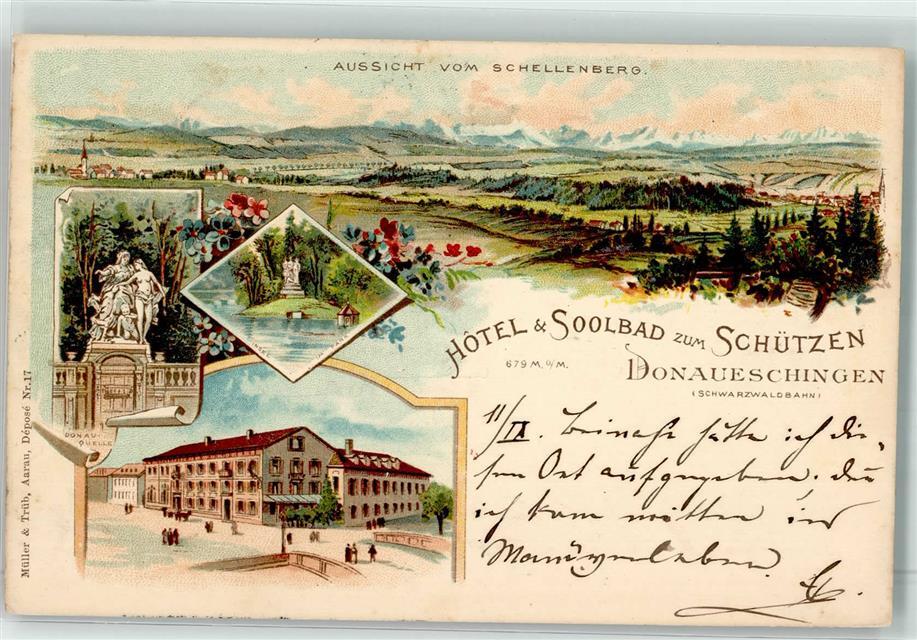 AUSSICHT VOM SCHELLENBERG.
HÔTEL & SOOLBAD ZUM SCHÜTZEN
679 M. Ü/M.
DONAUESCHINGEN
(SCHWARZWALDBAHN)
DONAU-
QUELLE
Müller & Trüb, Aarau, Déposé Nr. 17
11/IX. Beinahe hätte ich die-
sen Ort aufgegeben. Den
ich kam mitten ins
Manöverleben.